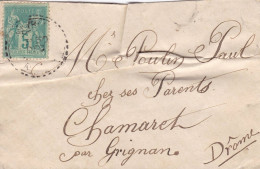 Mr Poulin Paul
chez ses Parents
Chamaret
par Grignan
Drôme
5